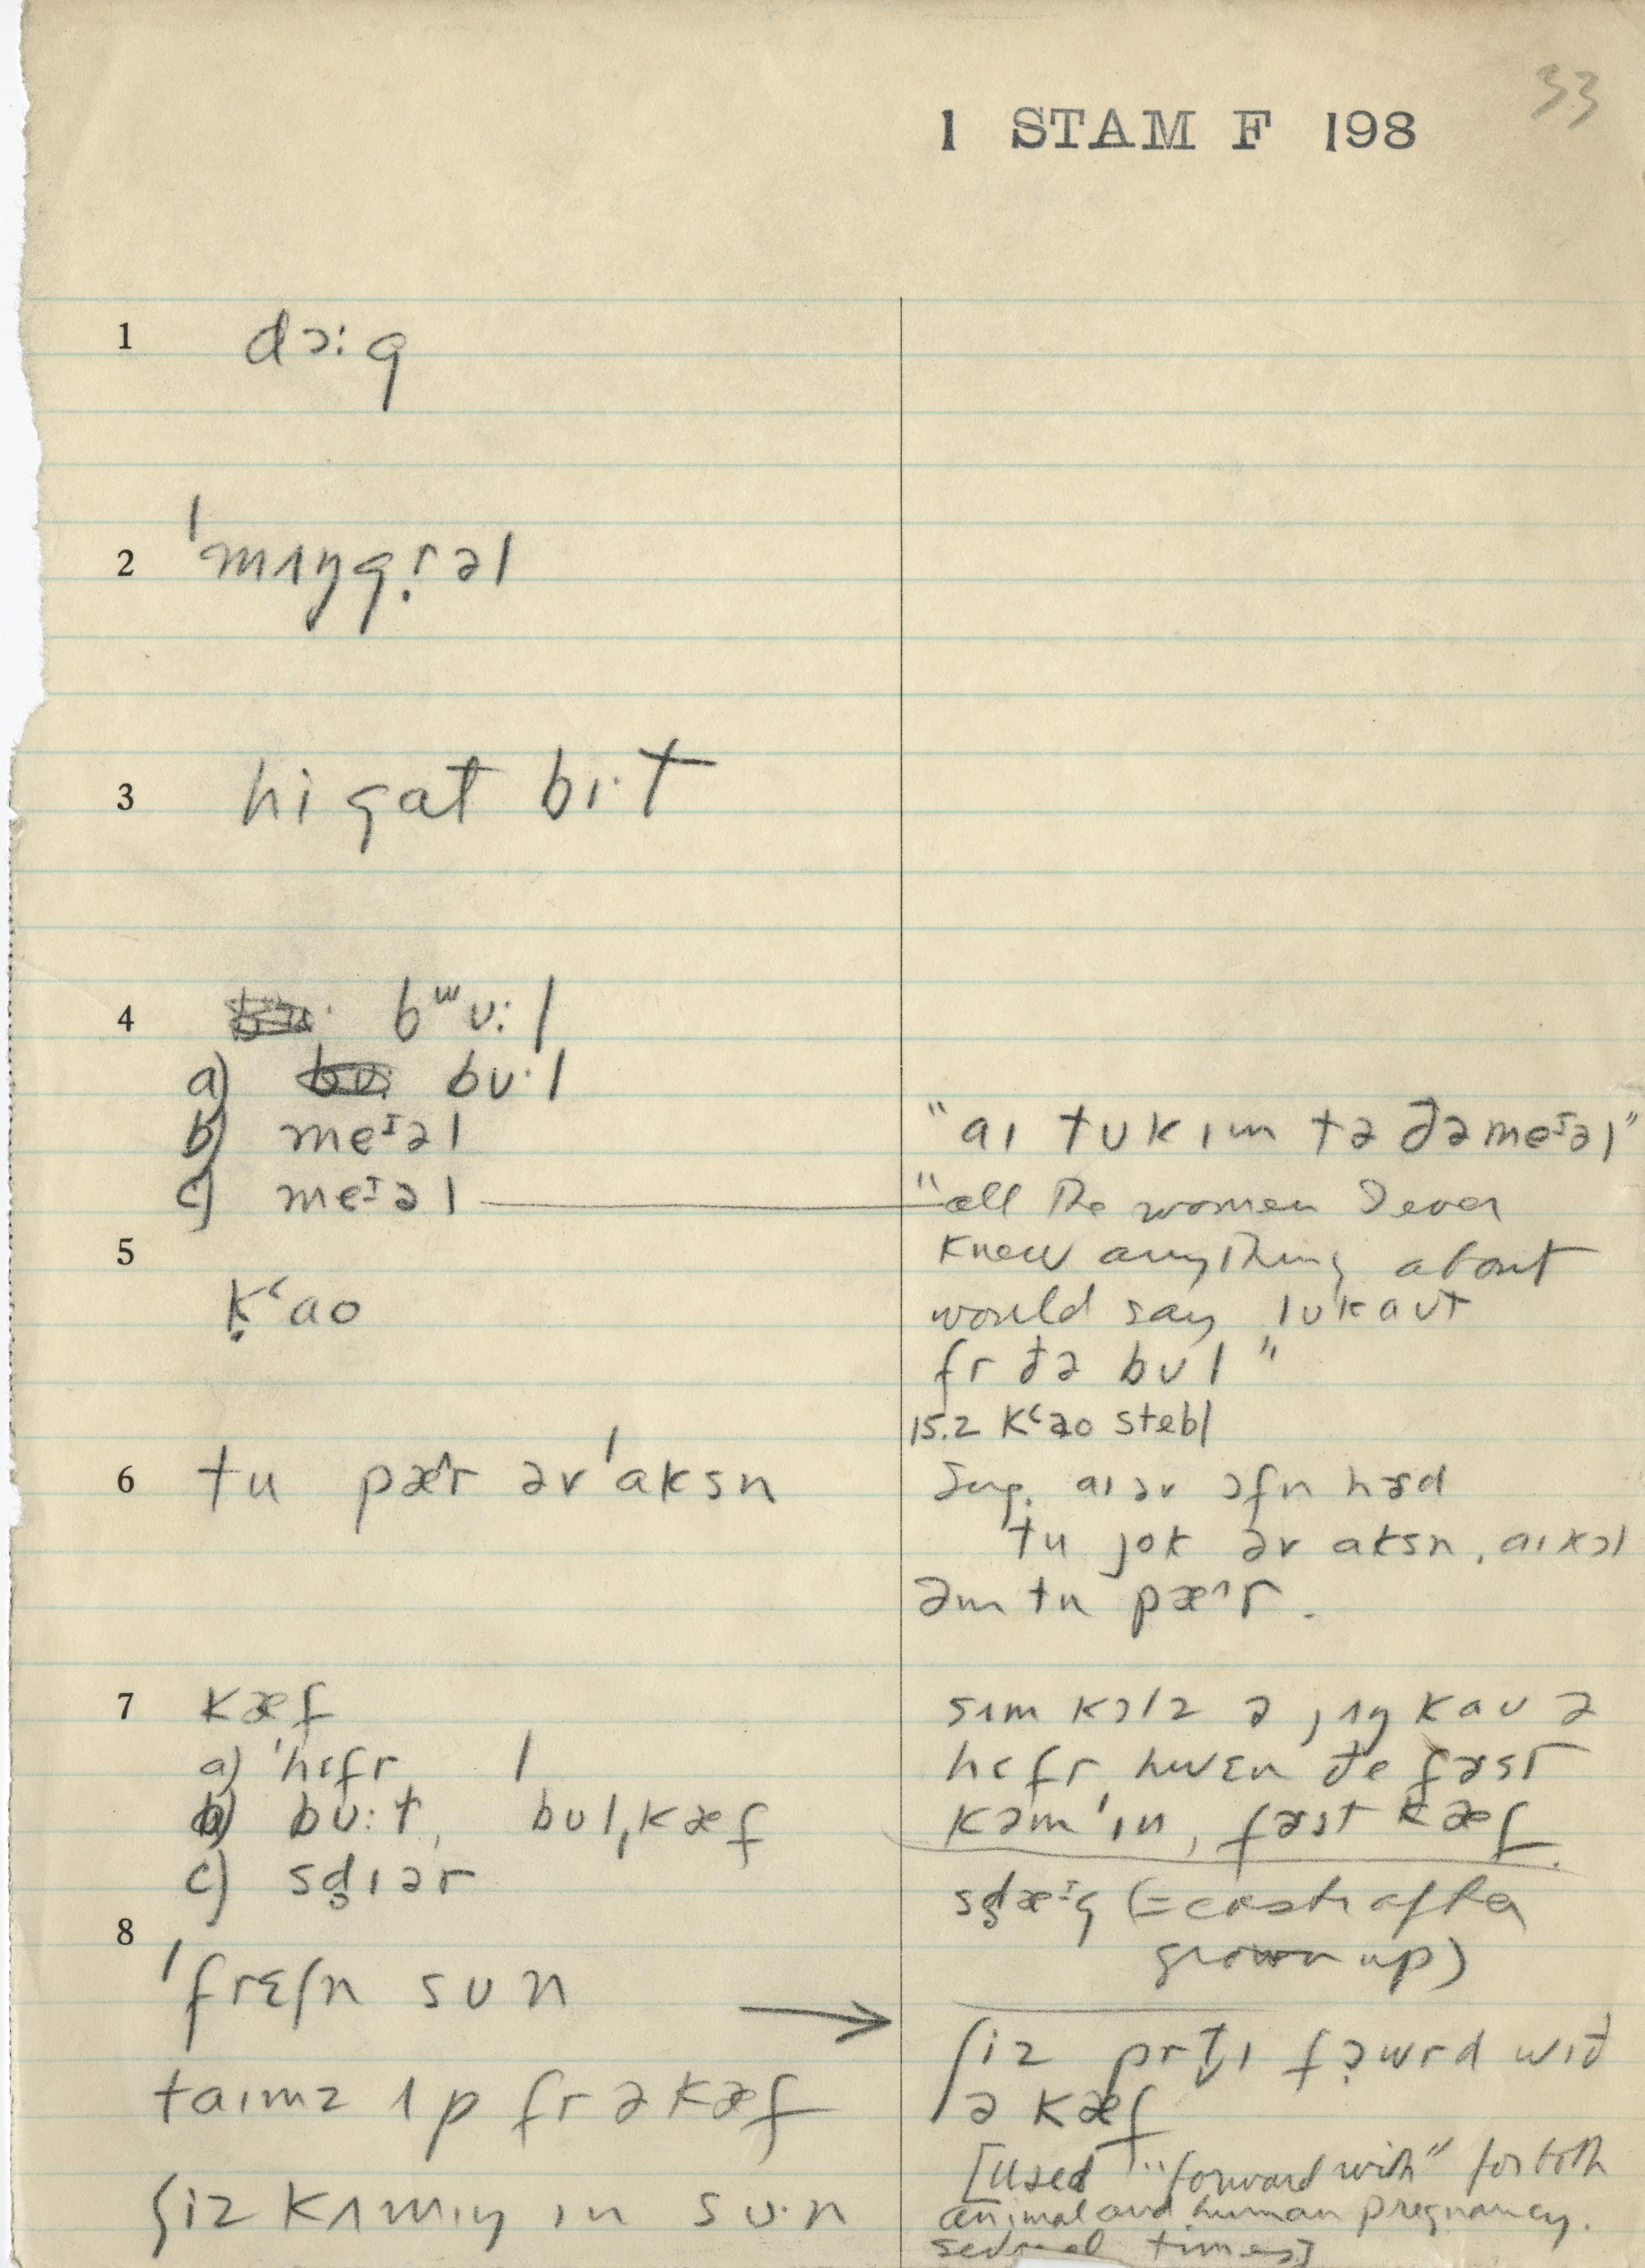 33
1 STAM F 198
1 dɔ:g
2 ˈmʌŋgr̩əl
3 hi gat bɪ·t
4 bʷʊ:l
a) bʊ·l
b) meᶦəl
"aɪ tʊk ɪm tə ðə meᶦəl"
c) meᶦəl
"all the women I ever
knew anything about
would say lʊk aʊt
fr ðə bʊl"
5 k̩ʻao
15.2 kʻao stebl
6 tu pæ^r əv ˈaksn
Sug. aɪ əv ɔfn hɜd
tu jok əv aksn, aɪ kɔl
əm tu pæ^r.
7 kæf
a) ˈhɛfr
b) bʊ:t, bʊl,kæf
c) sd̥ɪər
sʌm kɔlz ə jʌŋ kaʊ ə
hɛfr hwɛn ðe fɜst
kəmˈɪn, fɜst kæf
sd̥æᶦg (= castr after
grown up)
8 ˈfrɛʃn sʊn
taɪmz ʌp fr ə kæf
ʃiz kʌmɪŋ ɪn sʊ·n
→ ʃiz prt̬ɪ fɔwrd wɪð
ə kæf
[used "forward with" for both
animal and human pregnancy.
several times]